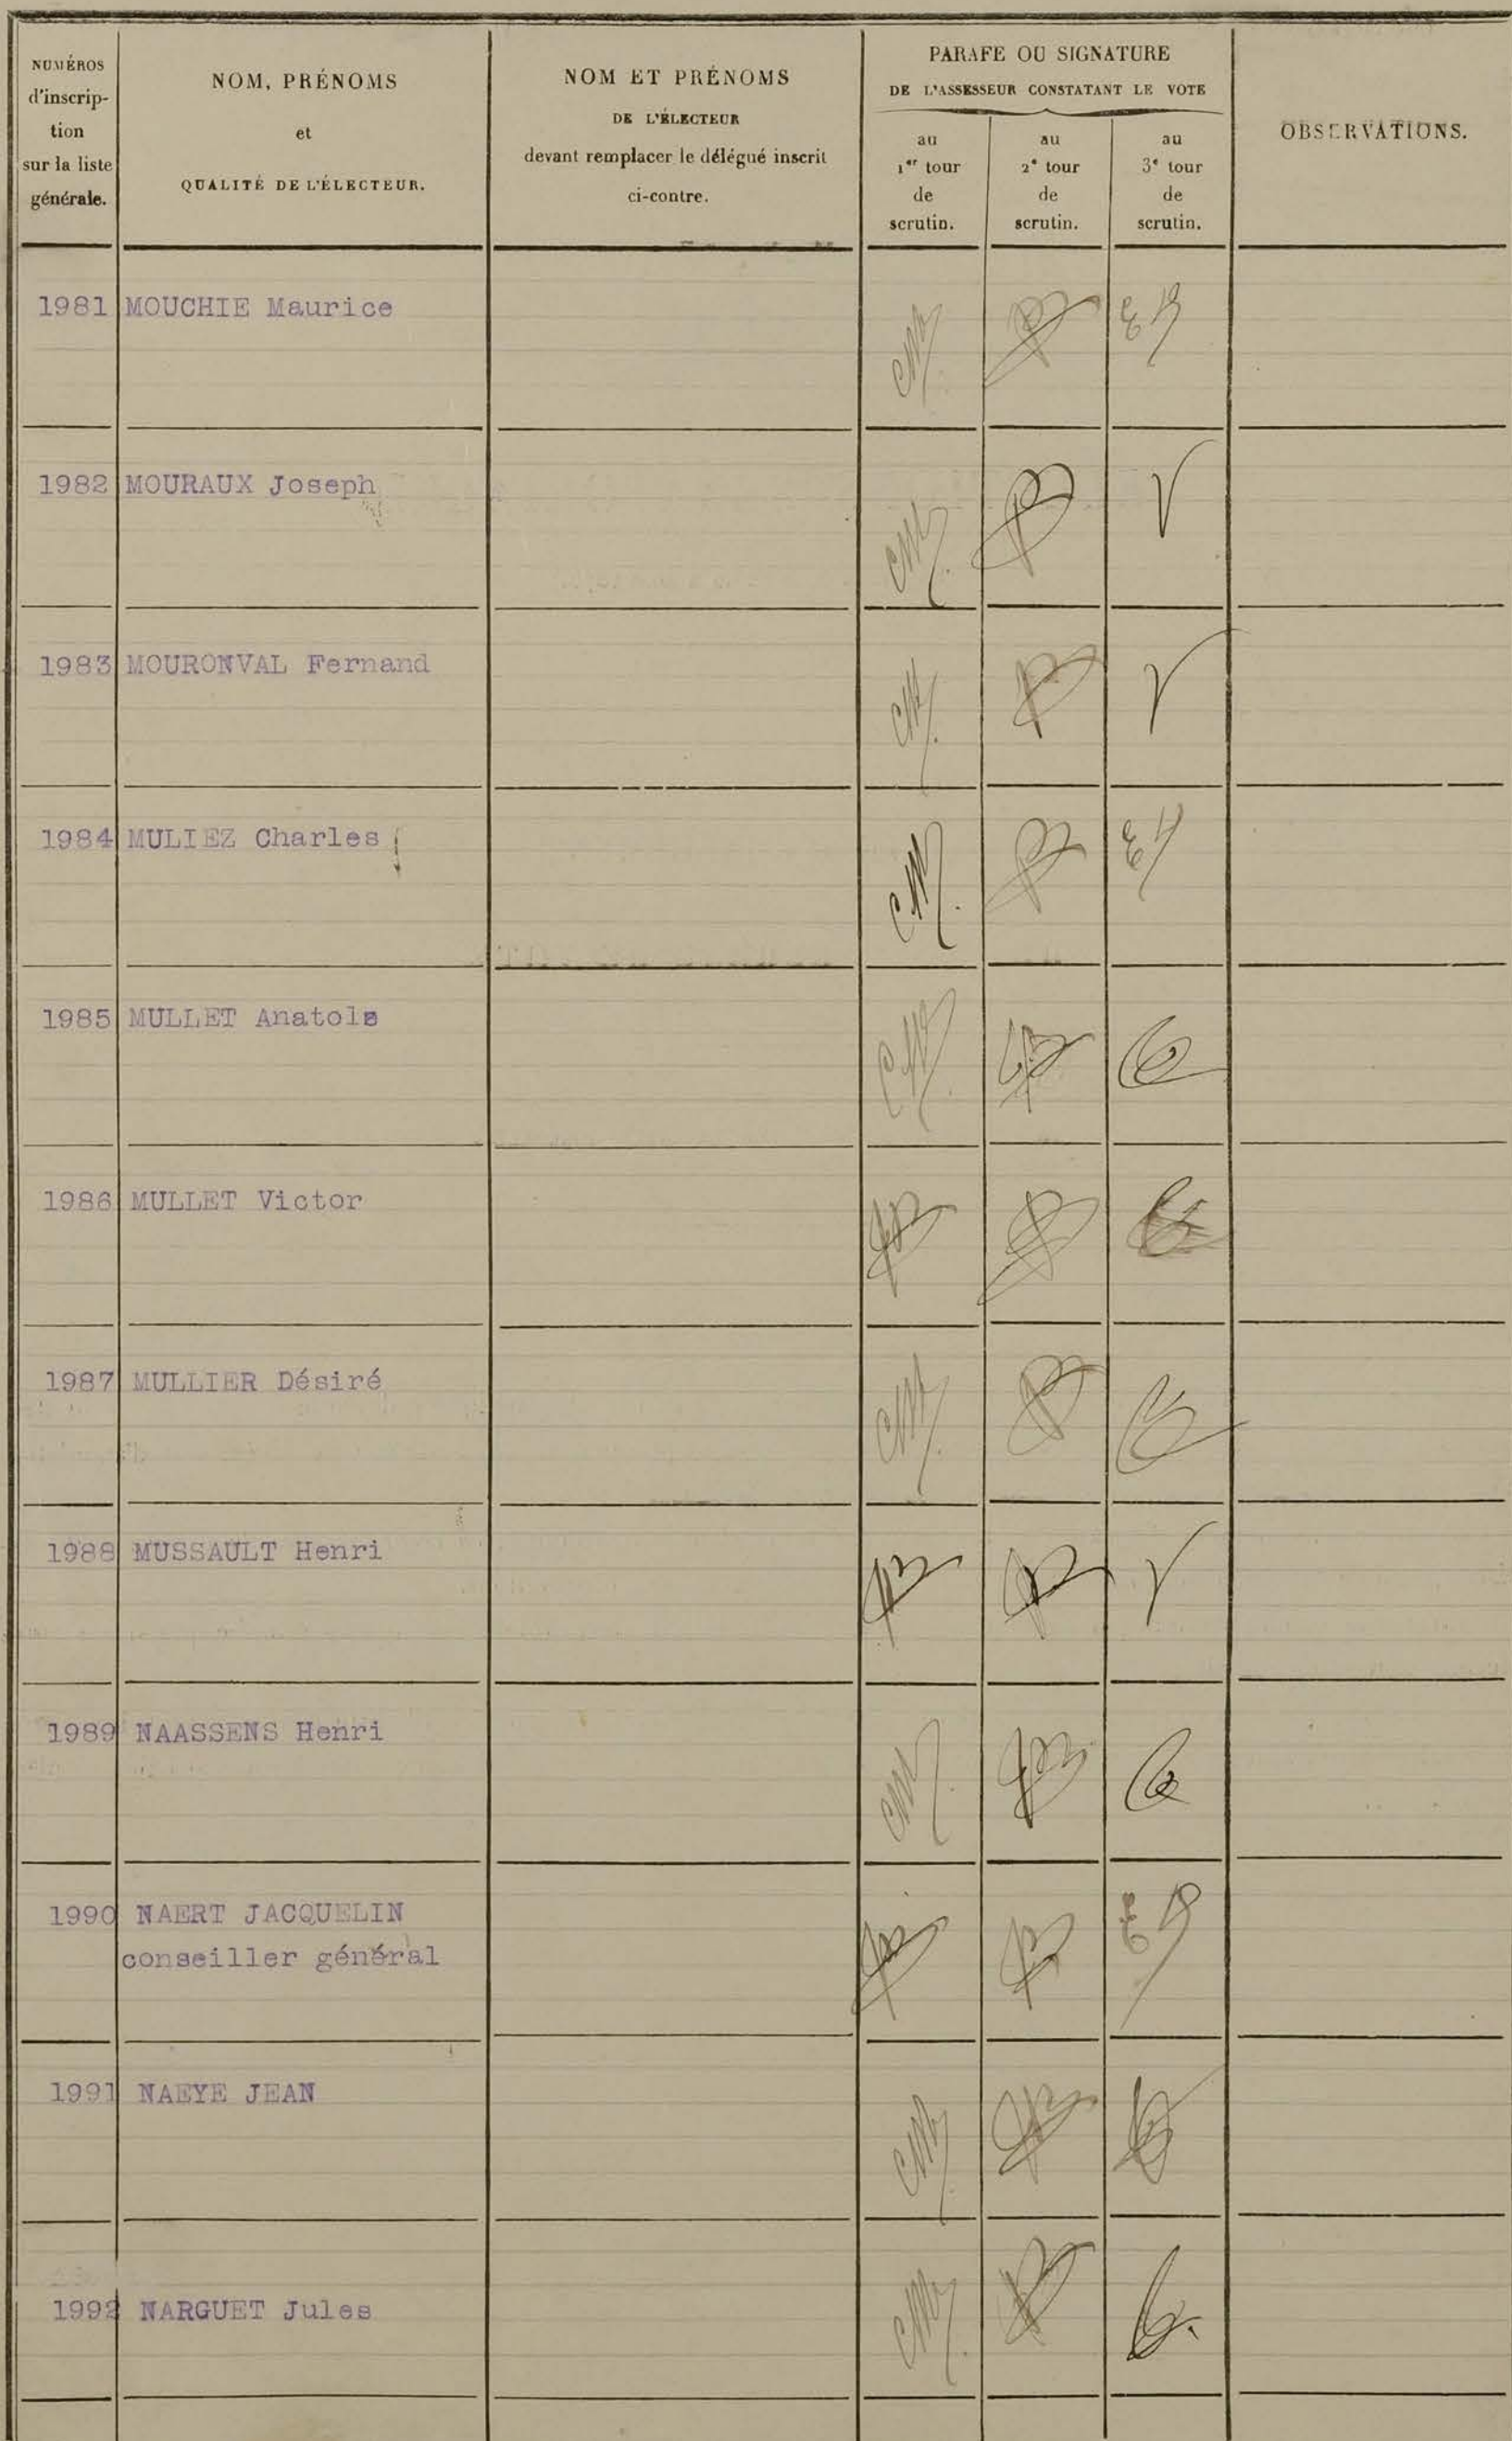 NUMÉROS
d'inscrip-
tion
sur la liste
générale.
NOM, PRÉNOMS
et
QUALITÉ DE L'ÉLECTEUR.
NOM ET PRÉNOMS
DE L'ÉLECTEUR
devant remplacer le délégué inscrit
ci-contre.
PARAFE OU SIGNATURE
DE L'ASSESSEUR CONSTATANT LE VOTE
au
1er tour
de
scrutin.
au
2e tour
de
scrutin.
au
3e tour
de
scrutin.
OBSERVATIONS.
1981 MOUCHIE Maurice
1982 MOURAUX Joseph
1983 MOURONVAL Fernand
1984 MULIEZ Charles
1985 MULLET Anatole
1986 MULLET Victor
1987 MULLIER Désiré
1988 MUSSAULT Henri
1989 NAASSENS Henri
1990 NAERT JACQUELIN
conseiller général
1991 NAEYE JEAN
1992 NARGUET Jules